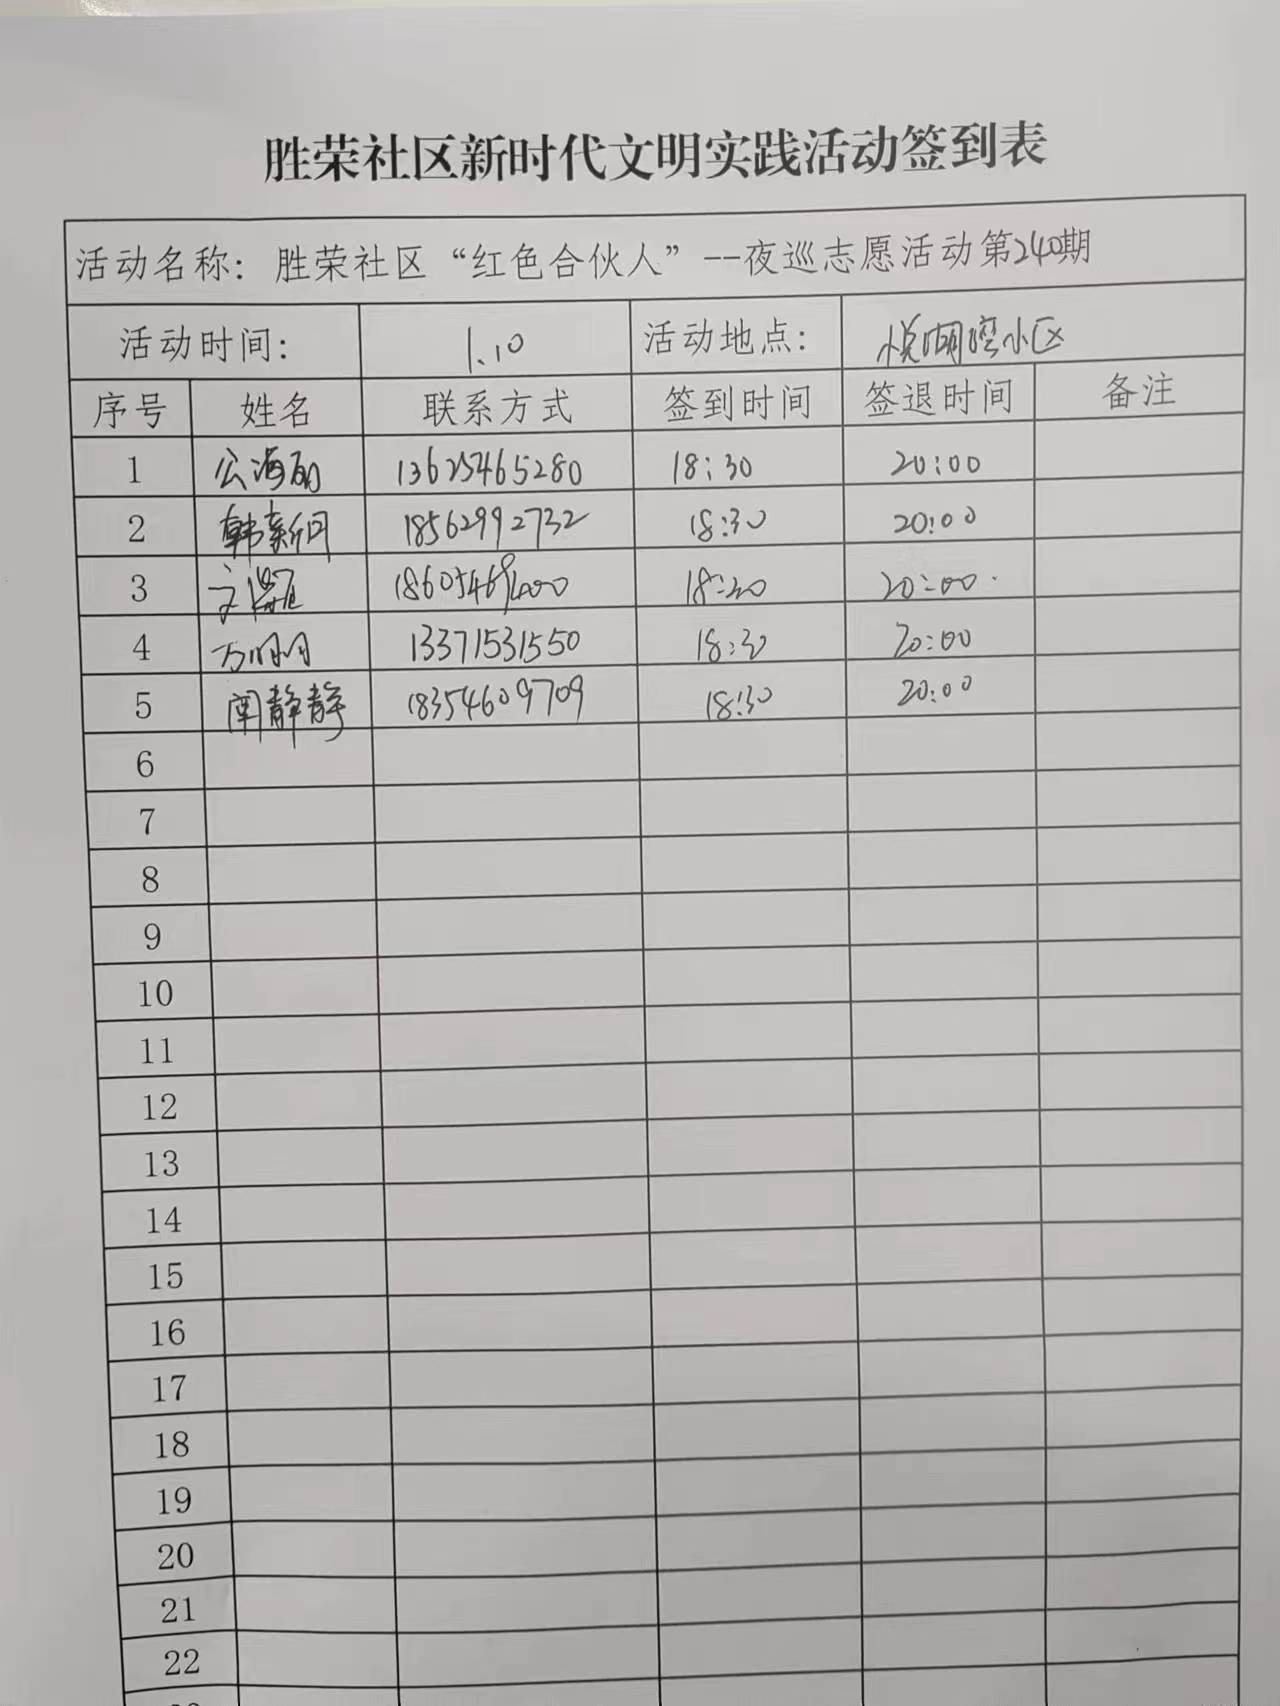 胜荣社区新时代文明实践活动签到表
活动名称：胜荣社区“红色合伙人”--夜巡志愿活动第240期
活动时间： 1.10 活动地点： 悦湖湾小区
序号 姓名 联系方式 签到时间 签退时间 备注
1 公海丽 13625465280 18:30 20:00
2 18562992732 18:30 20:00
3 18:30 20:00
4 万明明 13371531550 18:30 20:00
5 闫静静 18354609709 18:30 20:00
6
7
8
9
10
11
12
13
14
15
16
17
18
19
20
21
22